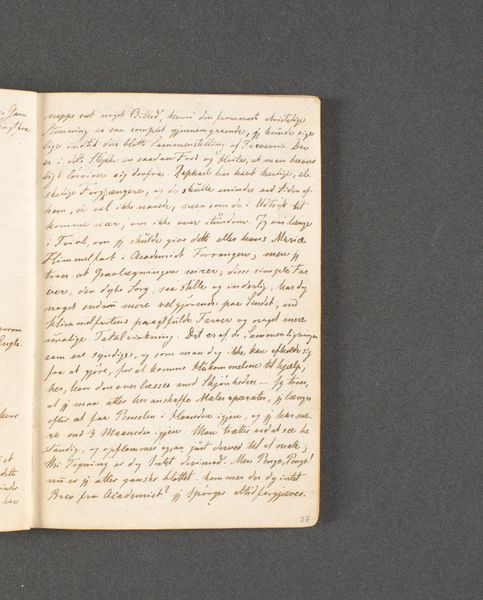 neppe est noget Billed, hvori den frommeste christelige
Stemning er saa complet gjennemgaaende, jeg kunde sige
lige indtil den blotte Sammenstilling af Farverne. Der
er i dette Stykke en saadan Fred og Hvile, at man
har havt herlige, el-
skelige Forgjængere, og de skulde mindes ved Siden af
ham, de vel ikke naaede, men som de i Udtryk tit
komme nær, om ikke over stundom. Jeg var længe
i Tvivl, om jeg skulde give dette eller hans Mariæ
Himmelfart i Academiet Forrangen; men jeg
troer at Gravlæggningen seirer; disse simple Far
ver, den dybe Sorg, saa stille og inderlig, har dog
noget endnu mere velgjørende paa Sindet, end
Himmelfartens pragtfulde Farver og noget mere
urolige Totalvirkning. Det er af de Sammenligninger
som ere syndige, og som man dog ikke kan afholde sig
fra at gjøre, for at komme Hukommelsen til hjælp,
her, hvor den overlæsses med Skjønheder. Jeg troer,
at jeg maa atter her anskaffe Maler apparater, jeg længes
efter at faae Penselen i Haanden igjen, og jeg har væ-
re ond 3 Maaneder igjen. Man trættes ved at see be
standig, og opflammes ogsaa just derved til at male;
thi Tegning er dog Intet derimod. Men Penge, Penge!
nu er jeg atter ganske blottet. kommer der dog intet
Brev fra Academiet? jeg spørger altid forgjæves.
27